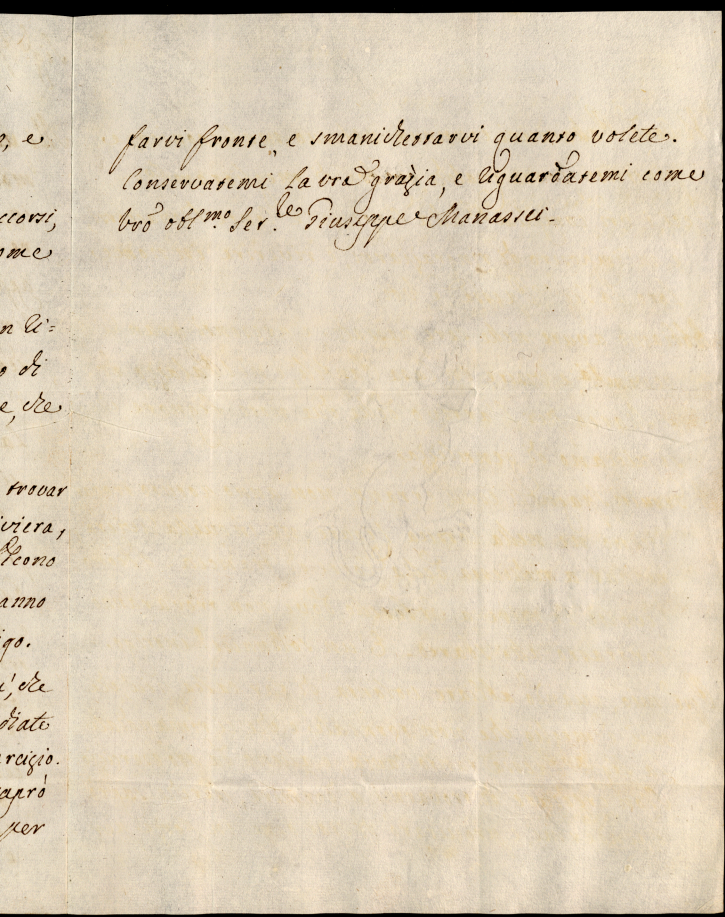 o, e
ccorsi,
ome
n Ri=
o di
e, che
trovar
iviera,
dicono
anno
igo.
che
diate
rcizio.
aprò
per
farvi fronte, e smanichettarvi quanto volete.
Conservatemi la vrã grazia, e riguardatemi come
vrõ obl.mo Ser.le Giuseppe Manassei.